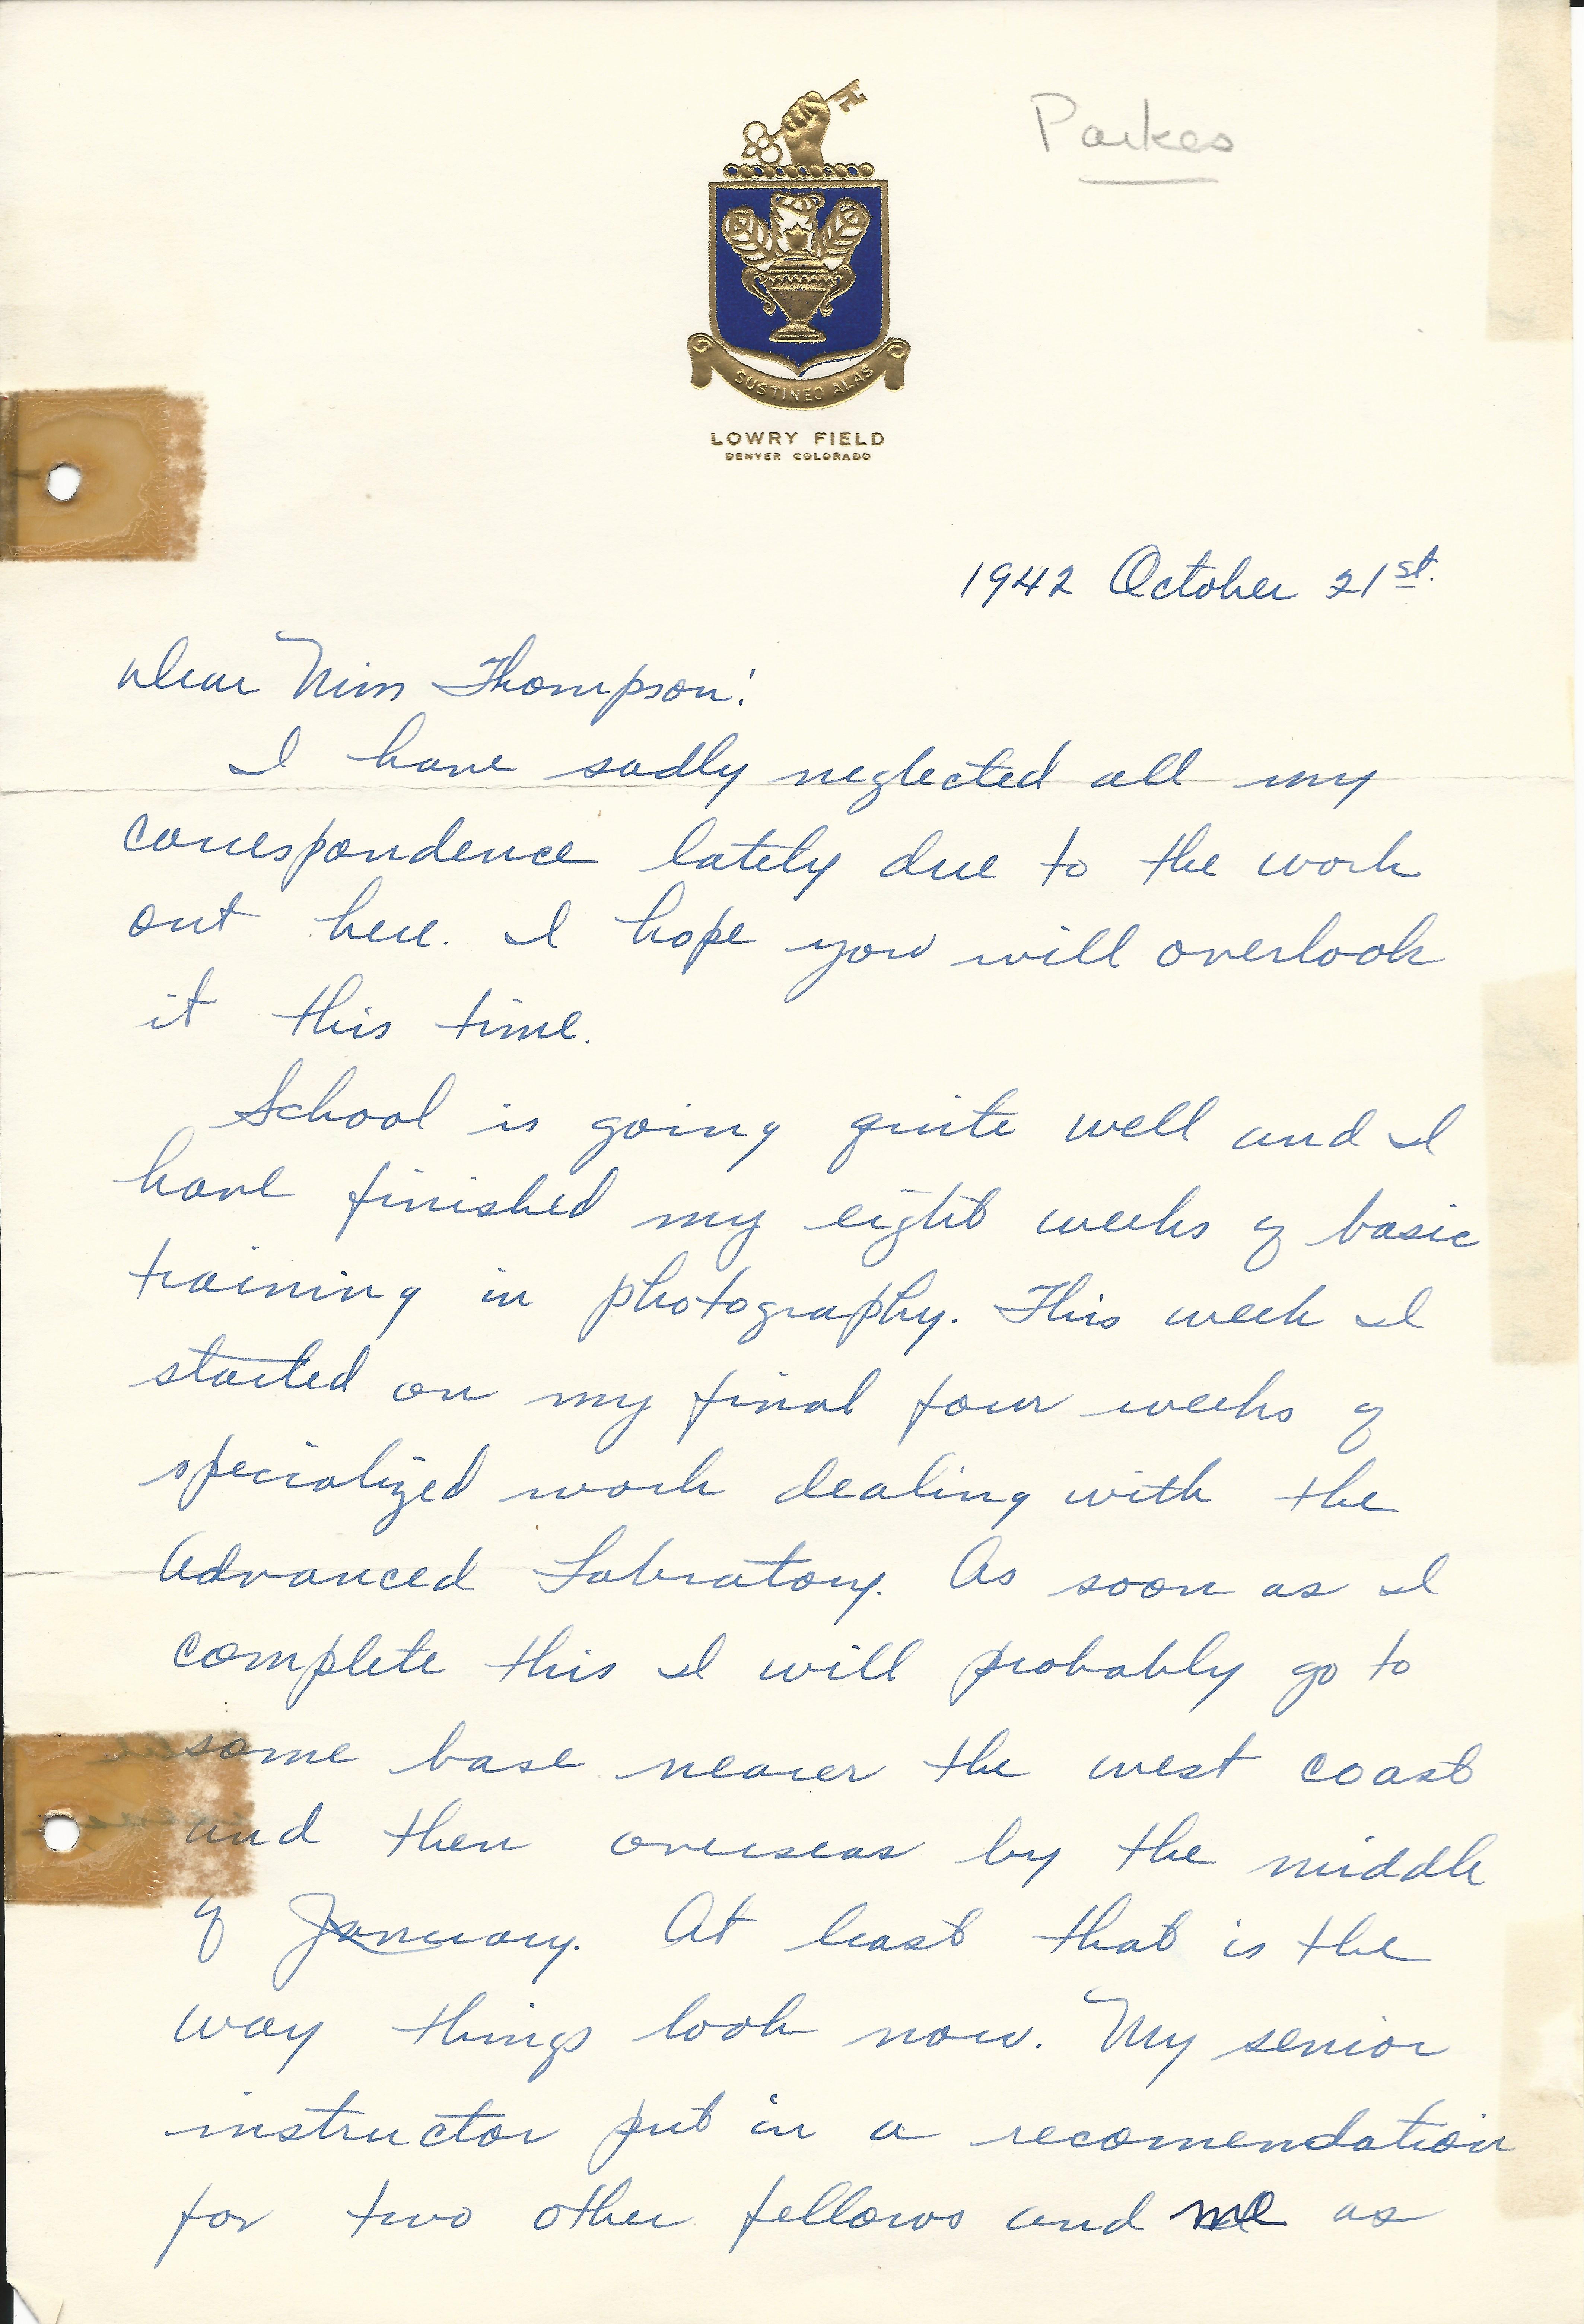 Parkes
SUSTINEO ALAS
LOWRY FIELD
DENVER COLORADO
1942 October 21st.
Dear Miss Thompson:
I have sadly neglected all my
correspondence lately due to the work
out here. I hope you will overlook
it this time.
School is going quite well and I
have finished my eight weeks of basic
training in photography. This week I
started on my final four weeks of
specialized work dealing with the
Advanced Labratory. As soon as I
complete this I will probably go to
some base nearer the west coast
and then overseas by the middle
of January. At least that is the
way things look now. My senior
instructor put in a recomendation
for two other fellows and me as